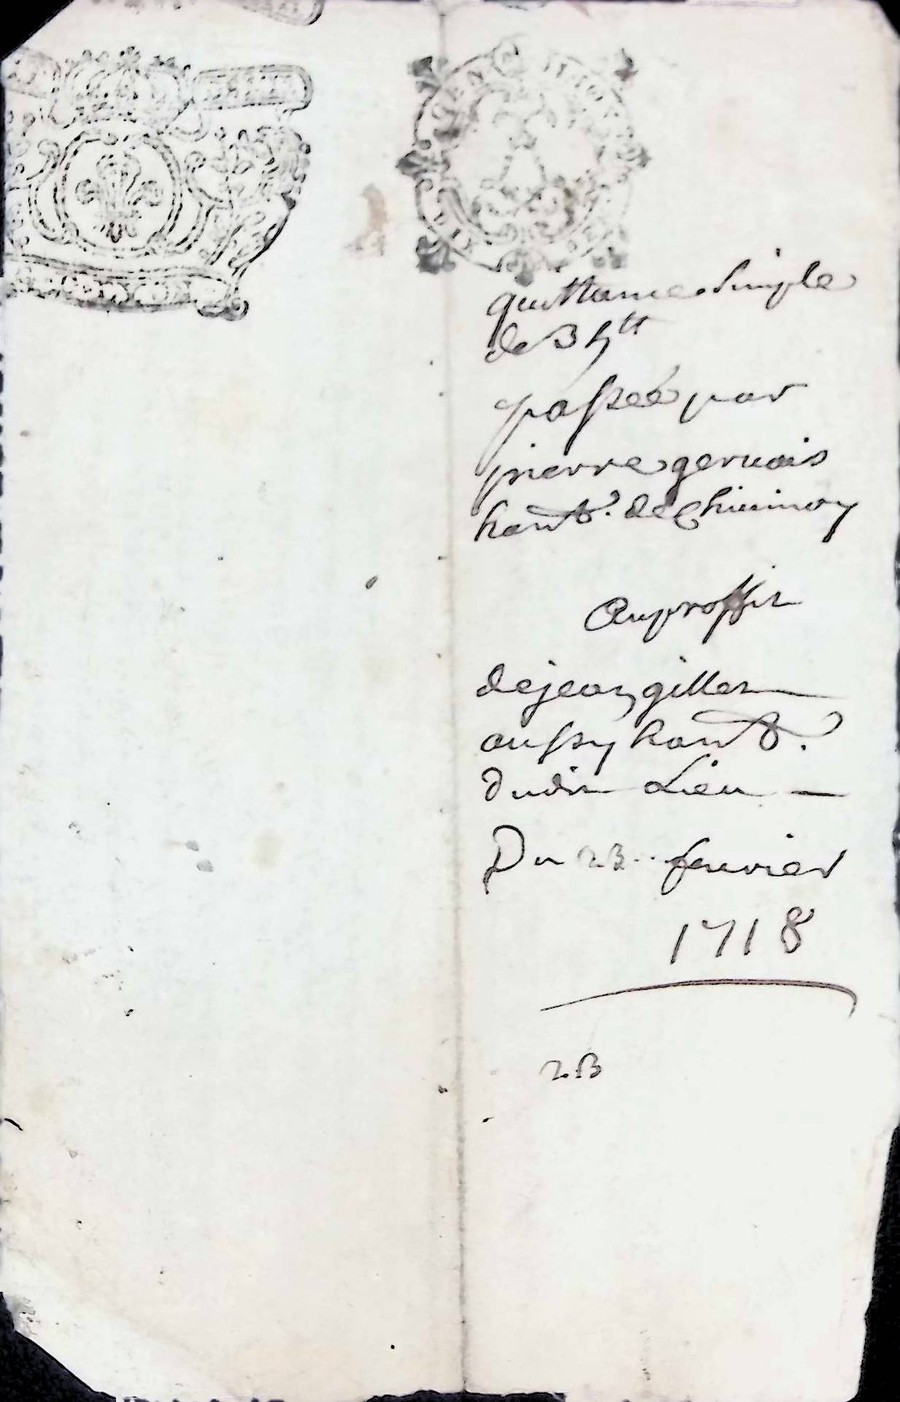 quittance simple
de 35ᵗᵗ
passée par
pierre gervais
hanᵗ. de
Au proffit
de jean gillet
aussy hanᵗ.
dudit Lieu —
Du 23.. feuvrier
1718
23